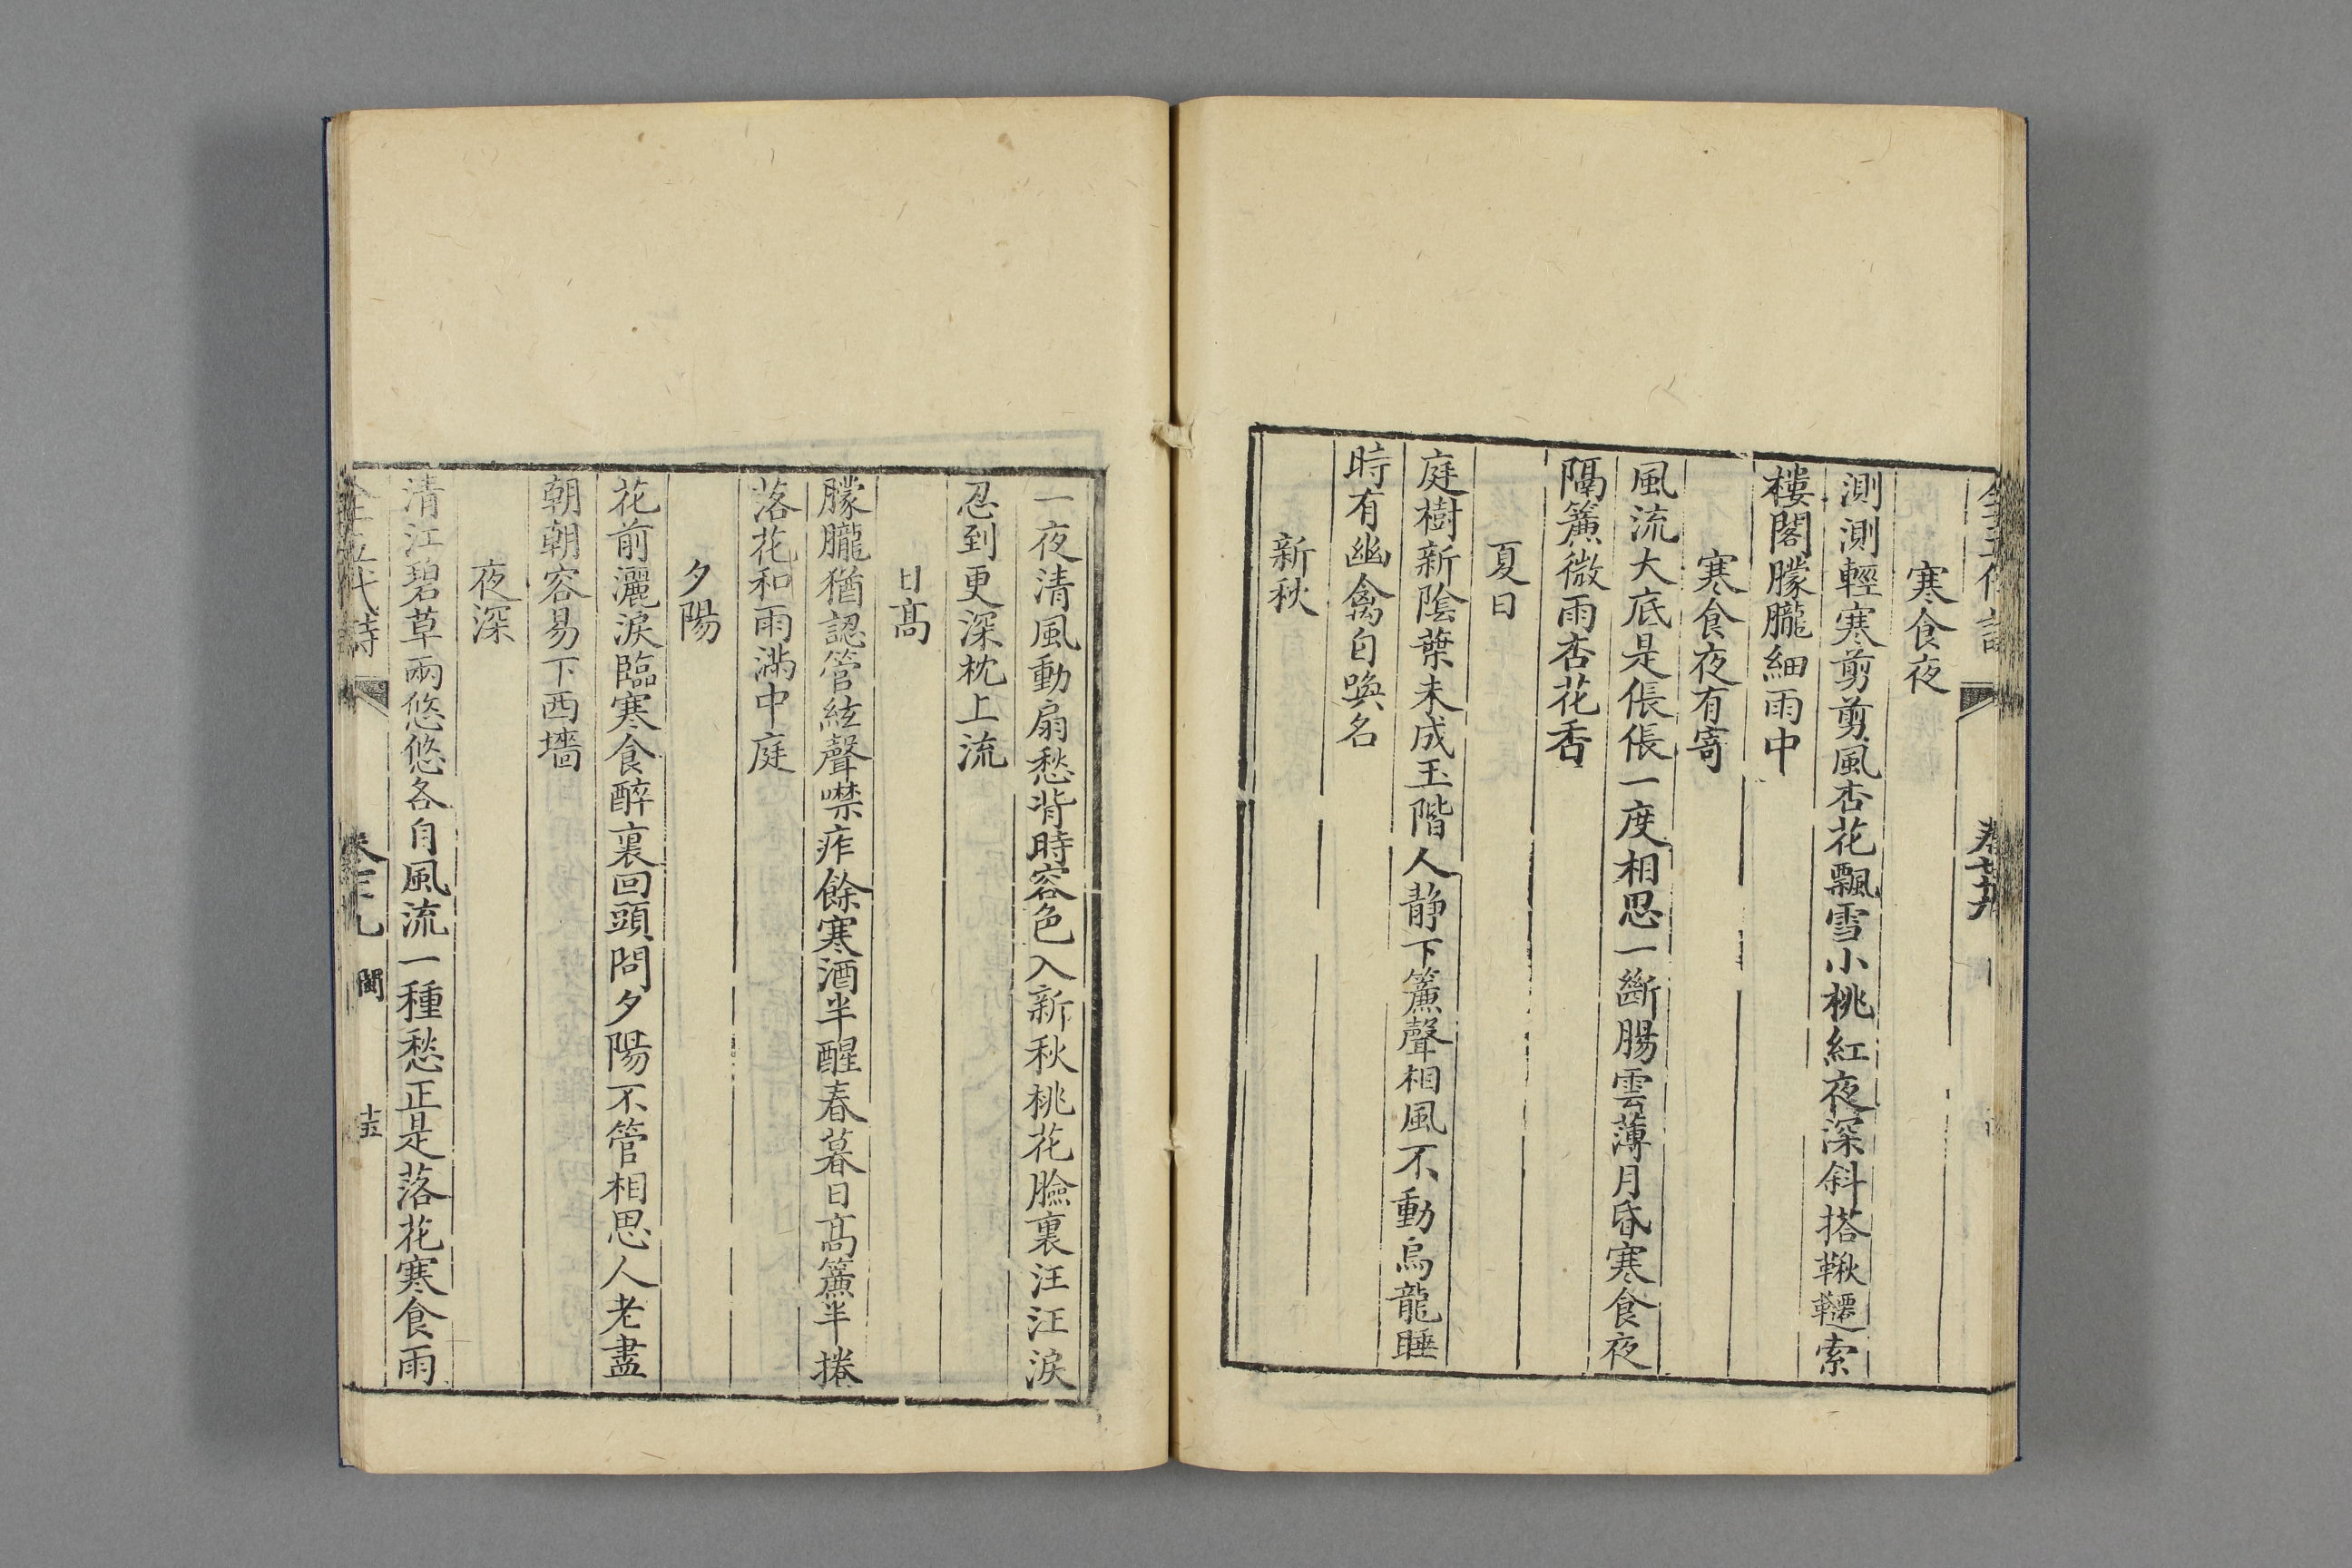 寒食夜
測測輕寒剪剪風杏花飄雪小桃紅夜深斜搭鞦韆索
樓閣朦朧細雨中
寒食夜有寄
風流大底是倀倀一度相思一斷腸雲薄月昏寒食夜
隔簾微雨杏花香
夏日
庭樹新陰葉未成玉階人靜下簾聲相風不動烏龍睡
時有幽禽自喚名
新秋
一夜清風動扇愁背時容色入新秋桃花臉裏汪汪淚
忍到更深枕上流
日髙
朦朧猶認管絃聲噤痄餘寒酒半醒春暮日髙簾半捲
落花和雨滿中庭
夕陽
花前灑淚臨寒食醉裏回頭問夕陽不管相思人老盡
朝朝容易下西墻
夜深
清江碧草兩悠悠各自風流一種愁正是落花寒食雨
五代詩
閩
十五